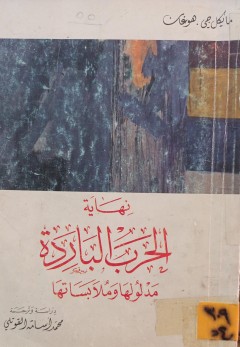 مايكل جي. هوغان
نهاية
الحرب الباردة
مدلولها وملابساتها
دراسة وترجمة
محمد أسامة القوتلي